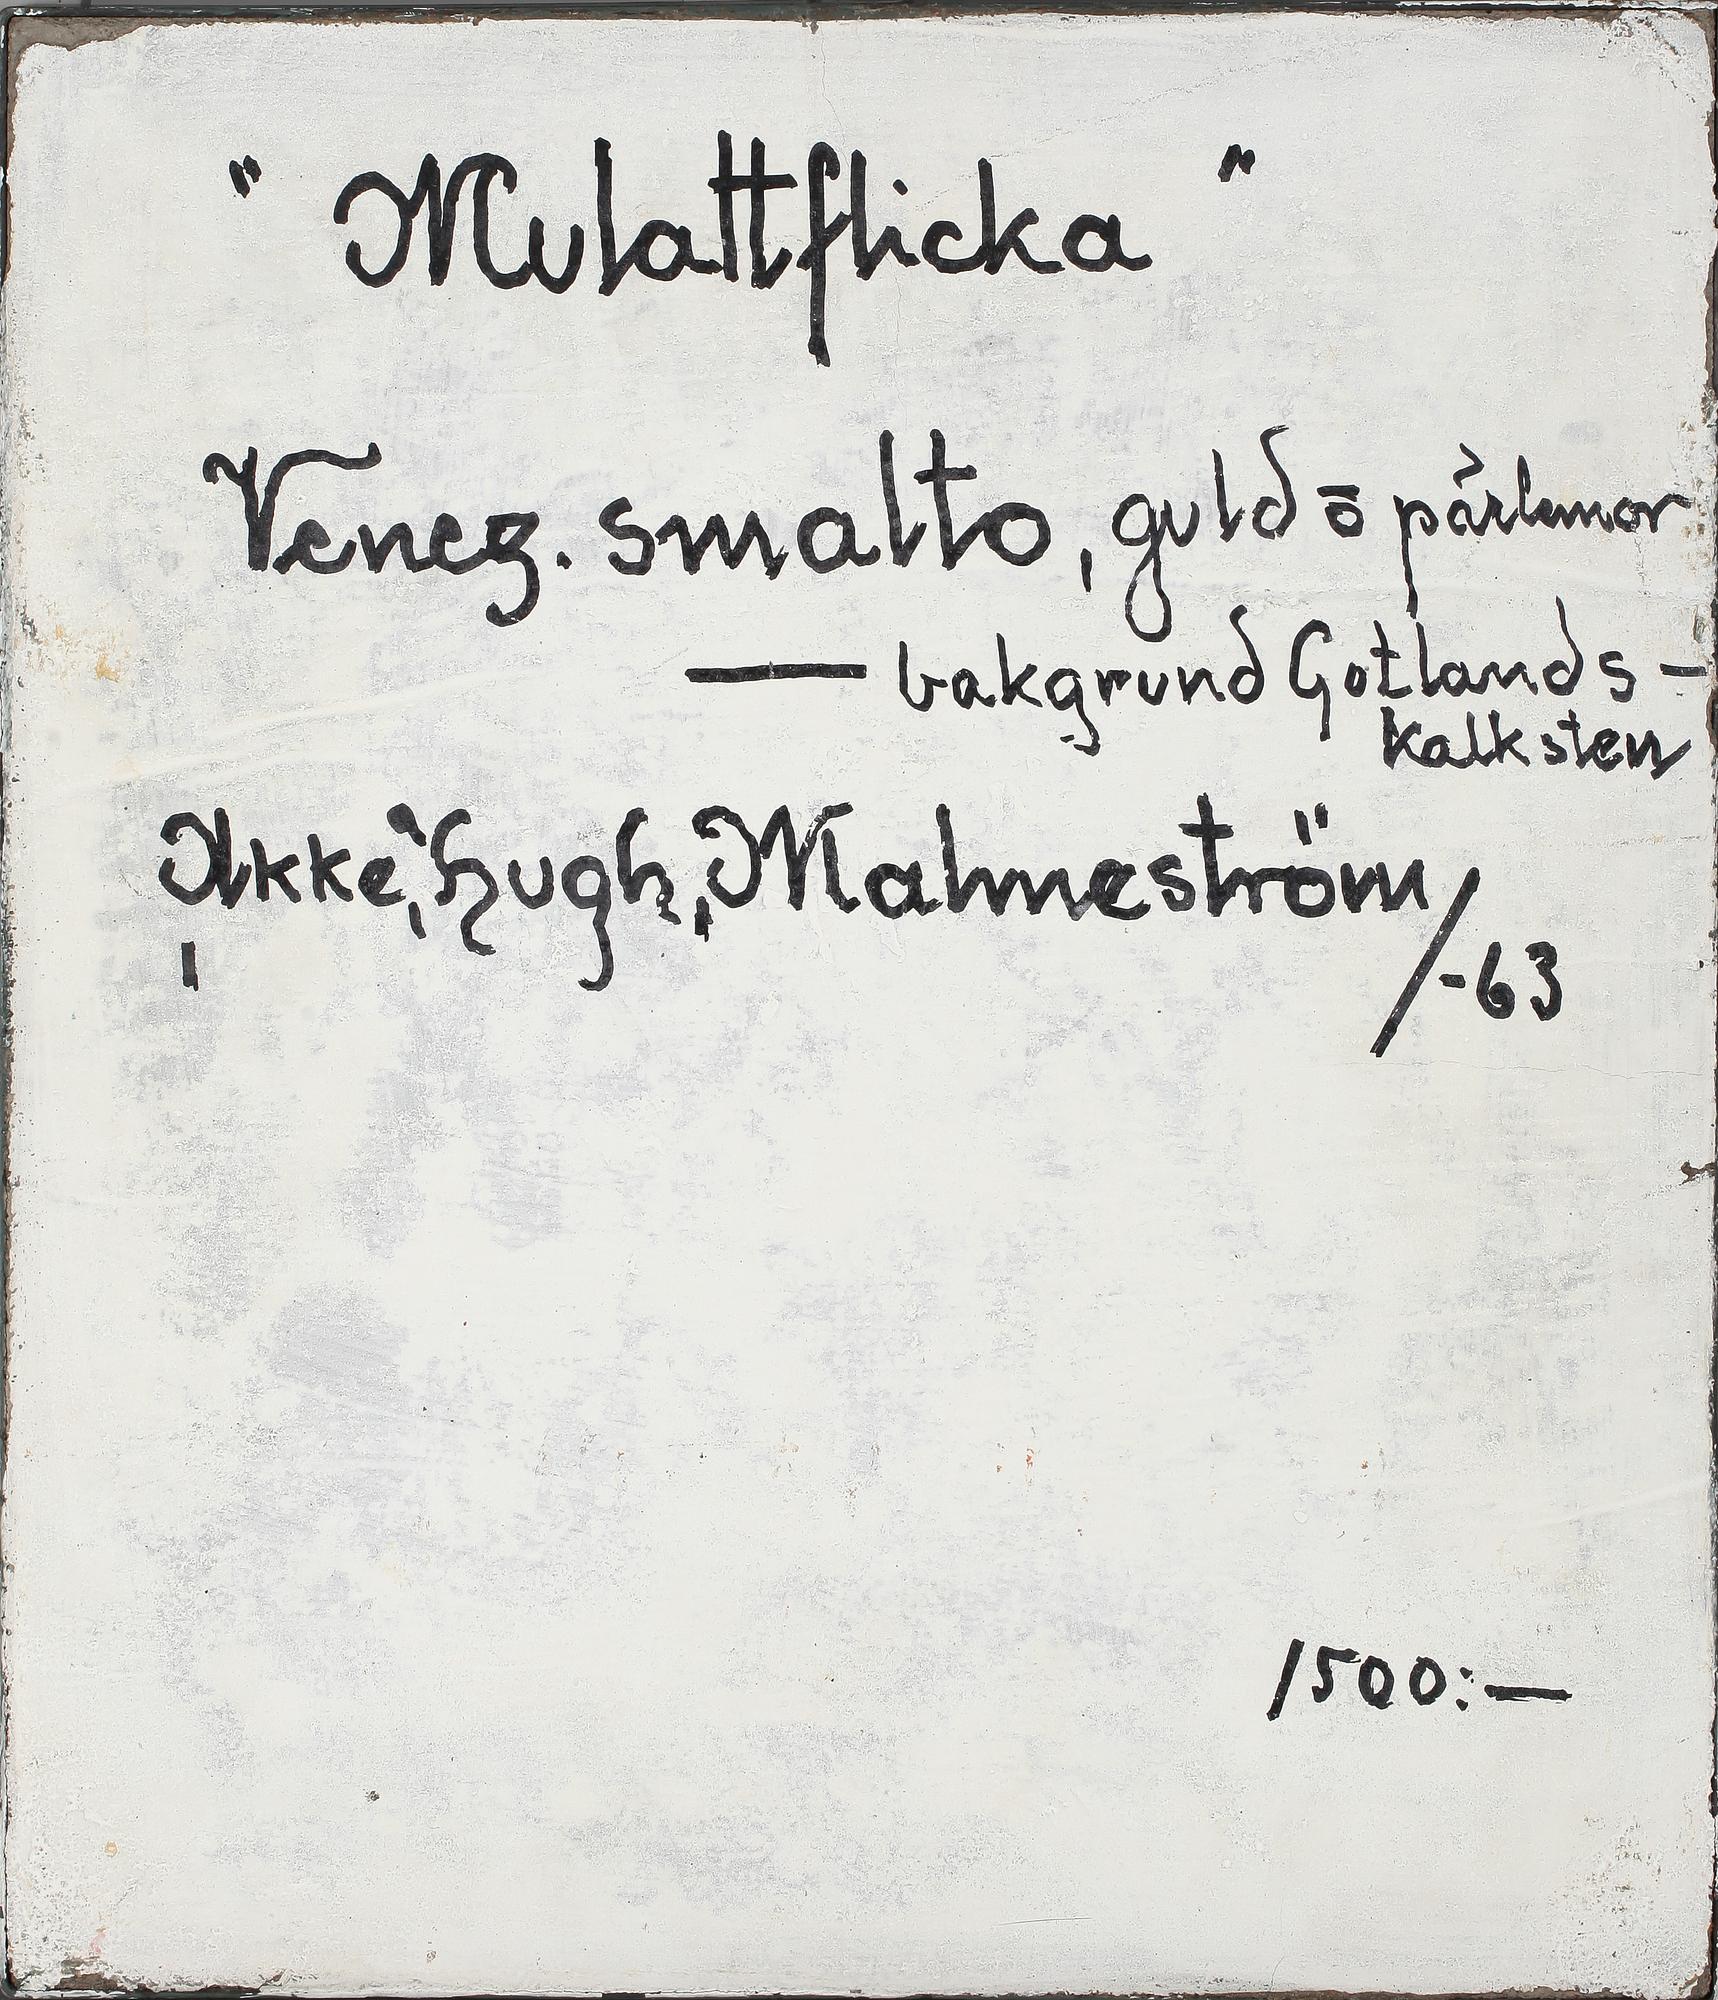 " Mulattflicka "
Venez. smalto, guld ō pärlemor
— bakgrund Gotlands-
kalksten
"Akke", Hugh, Malmeström/-63
1500:—